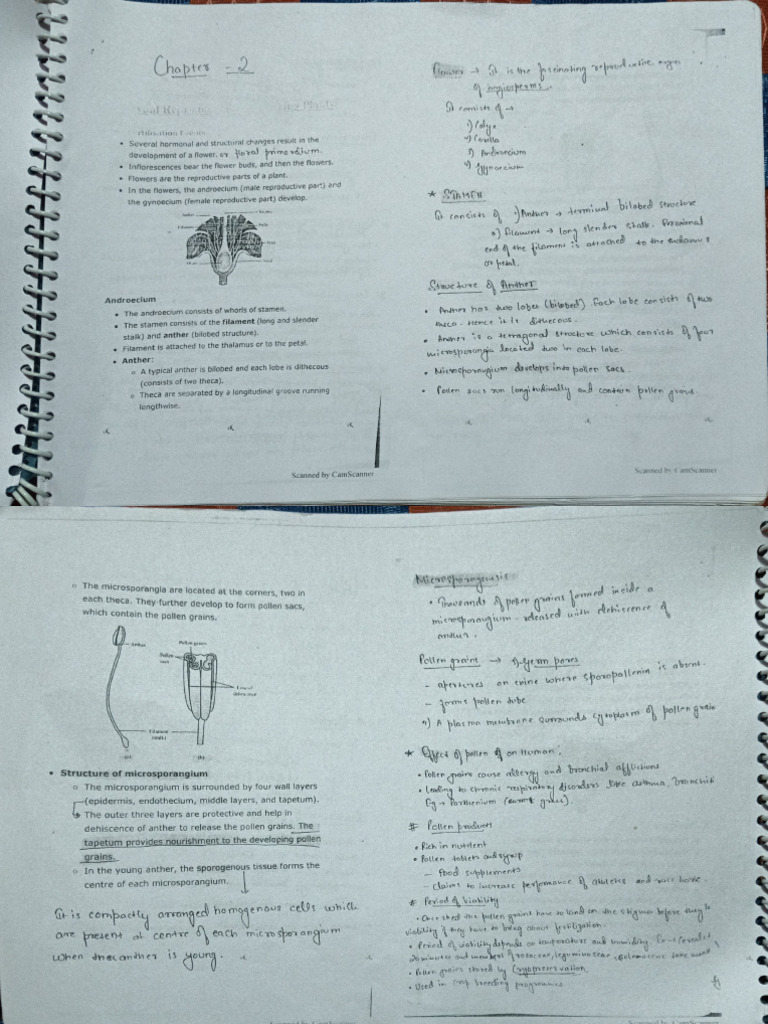 Chapter - 2
• Several hormonal and structural changes result in the
development of a flower. or floral primordium.
• Inflorescences bear the flower buds, and then the flowers.
• Flowers are the reproductive parts of a plant.
• In the flowers, the androecium (male reproductive part) and
the gynoecium (female reproductive part) develop.
Androecium
• The androecium consists of whorls of stamen.
• The stamen consists of the filament (long and slender
stalk) and anther (bilobed structure).
• Filament is attached to the thalamus or to the petal.
• Anther:
o A typical anther is bilobed and each lobe is dithecous
(consists of two theca).
o Theca are separated by a longitudinal groove running
lengthwise.
Scanned by CamScanner
→ It is the fascinating reproductive organ
of angiosperms.
It consists of →
1) Calyx
Corolla
Androecium
Gynoecium
* STAMEN
It consists of 1) Anther → terminal bilobed structure
2) filament → long slender stalk. Proximal
end of the filament is attached to the thalamus
or petal.
Structure of Anther
• Anther has two lobes (bilobed). Each lobe consists of two
theca. Hence it is dithecous.
• Anther is a tetragonal structure which consists of four
microsporangia located two in each lobe.
• Microsporangium develops into pollen sacs.
• Pollen sacs run longitudinally and contain pollen grains.
Scanned by CamScanner
o The microsporangia are located at the corners, two in
each theca. They further develop to form pollen sacs,
which contain the pollen grains.
Anther
Pollen grains
Pollen
Filament
(stalk)
(a)
(b)
• Structure of microsporangium
o The microsporangium is surrounded by four wall layers
(epidermis, endothecium, middle layers, and tapetum).
o The outer three layers are protective and help in
dehiscence of anther to release the pollen grains. The
tapetum provides nourishment to the developing pollen
grains.
o In the young anther, the sporogenous tissue forms the
centre of each microsporangium.
It is compactly arranged homogenous cells which
are present at centre of each microsporangium
when the anther is young.
Microsporogenesis
• Thousands of pollen grains formed inside a
microsporangium released with dehiscence of
anther.
Pollen grains → 1) Germ pores
- apertures on exine where sporopollenin is absent.
- forms pollen tube
2) A plasma membrane surrounds cytoplasm of pollen grain
* Effect of pollen on Human.
• Pollen grains cause allergy and bronchial afflictions
• leading to chronic respiratory disorders like asthma, bronchitis
Eg → Parthenium (carrot grass).
# Pollen products
• Rich in nutrient
• Pollen tablets and syrup
- Food supplements
- claims to increase performance of athletes and race horse.
# Period of Viability
• Once shed the pollen grains have to land on the stigma before they lose
viability if they have to bring about fertilization.
• Period of viability depends on temperature and humidity.
• Pollen grains stored by Cryopreservation
• Used in crop breeding programmes